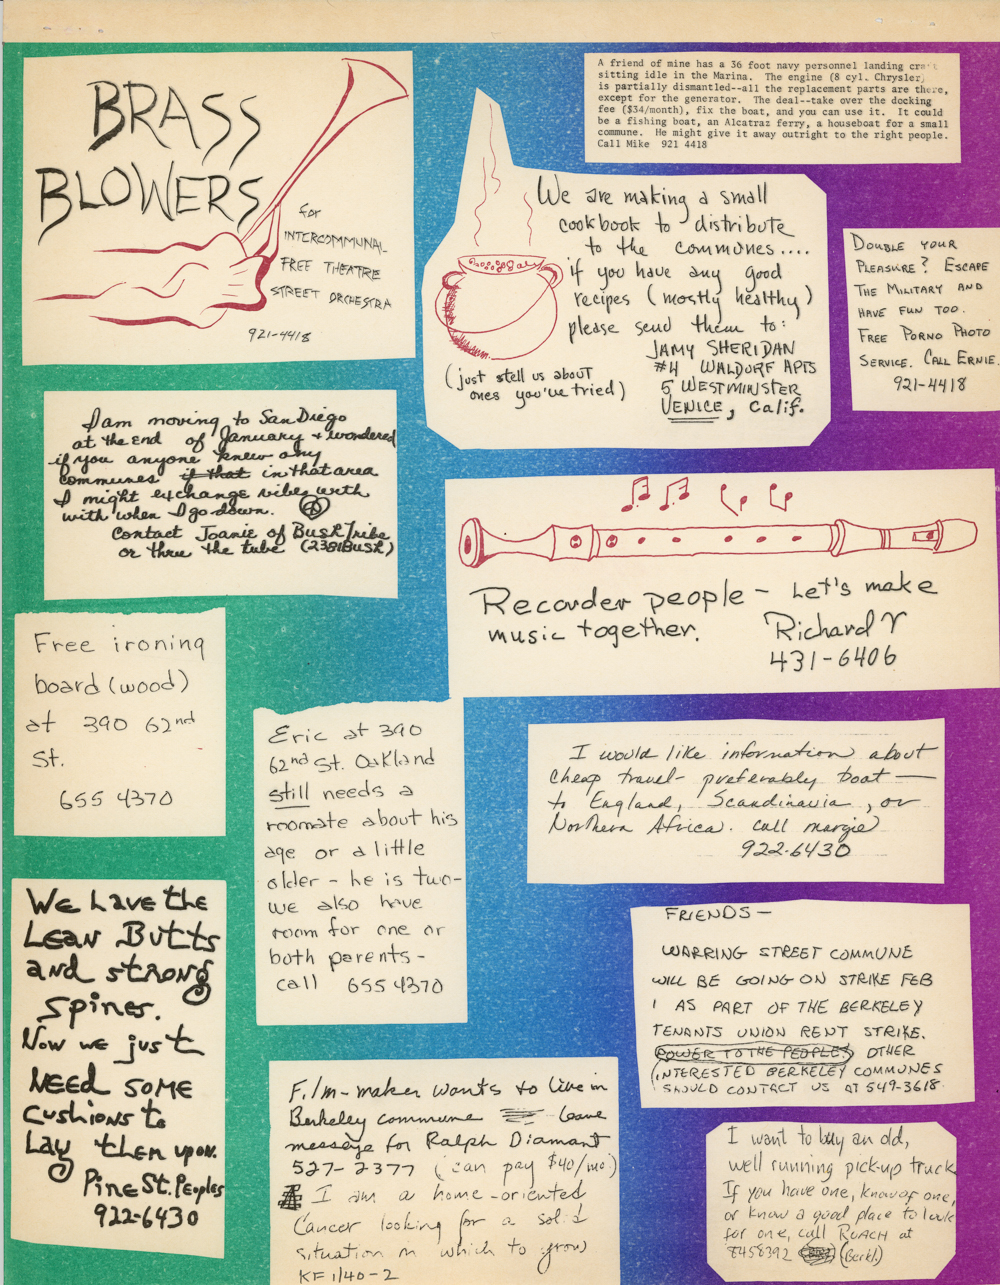 BRASS
BLOWERS
for
INTERCOMMUNAL
FREE THEATRE
STREET ORCHESTRA
921-4418
A friend of mine has a 36 foot navy personnel landing craft
sitting idle in the Marina. The engine (8 cyl. Chrysler)
is partially dismantled--all the replacement parts are there,
except for the generator. The deal--take over the docking
fee ($34/month), fix the boat, and you can use it. It could
be a fishing boat, an Alcatraz ferry, a houseboat for a small
commune. He might give it away outright to the right people.
Call Mike 921 4418
We are making a small
cookbook to distribute
to the communes....
if you have any good
recipes (mostly healthy)
please send them to:
JAMY SHERIDAN
#4 WALDORF APTS
5 WESTMINSTER
VENICE, Calif.
(just stell us about
ones you've tried)
DOUBLE YOUR
PLEASURE? ESCAPE
THE MILITARY AND
HAVE FUN TOO.
FREE PORNO PHOTO
SERVICE. CALL ERNIE.
921-4418
I am moving to San Diego
at the end of January + wondered
if you anyone knew any
communes if that in that area
I might exchange vibes with
with when I go down.
Contact Joanie of Bush Tribe
or thru the tube (2381 Bush)
Recorder people - Let's make
music together. Richard V
431-6406
Free ironing
board (wood)
at 390 62nd
St.
655 4370
Eric at 390
62nd St. Oakland
still needs a
roomate about his
age or a little
older - he is two-
we also have
room for one or
both parents-
call 655 4370
I would like information about
cheap travel - preferably boat —
to England, Scandinavia, or
Northern Africa. call margie
922-6430
We have the
Lean Butts
and strong
spines.
Now we just
NEED some
cushions to
Lay then upon.
Pine St. Peoples
922-6430
FRIENDS —
WARRING STREET COMMUNE
WILL BE GOING ON STRIKE FEB
1 AS PART OF THE BERKELEY
TENANTS UNION RENT STRIKE.
POWER TO THE PEOPLE! OTHER
INTERESTED BERKELEY COMMUNES
SHOULD CONTACT US AT 549-3618.
Film-maker wants to live in
Berkeley commune Leave
message for Ralph Diamant
527-2377 (can pay $40/mo.)
I am a home-oriented
Cancer looking for a solid
situation in which to grow
KF 1140-2
I want to buy an old,
well running pick-up truck
If you have one, know of one,
or know a good place to look
for one, call ROACH at
8458392 (Berk.)